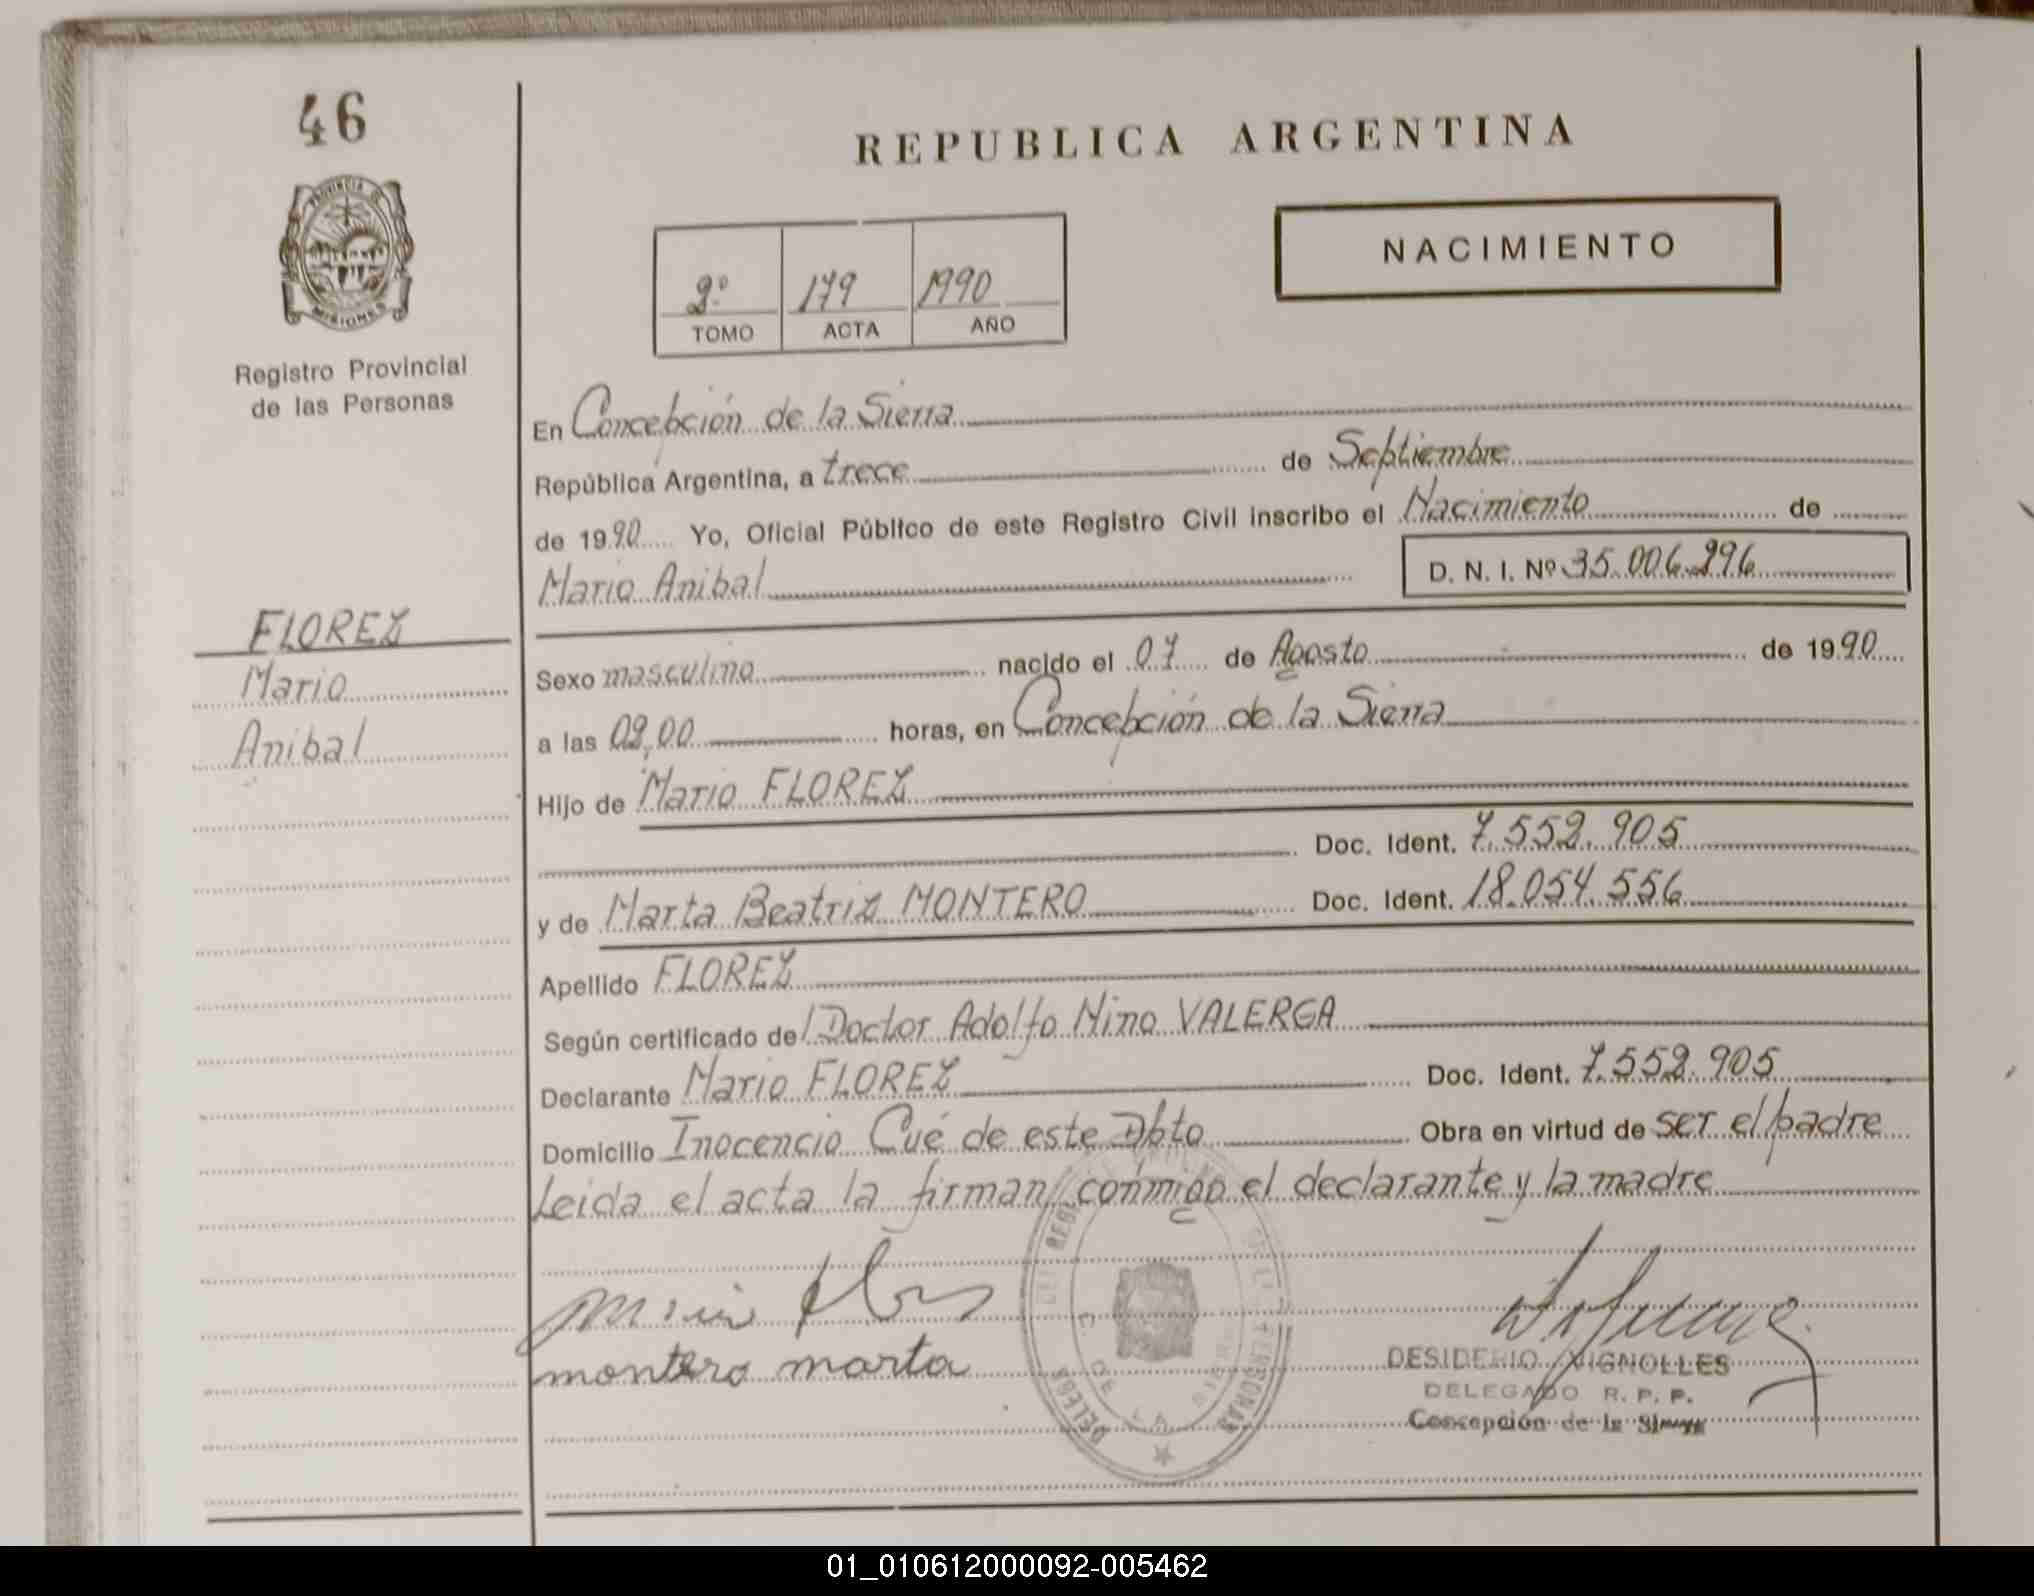 46
PROVINCIA DE
MISIONES
Registro Provincial
de las Personas
REPUBLICA ARGENTINA
NACIMIENTO
2º 179 1990
TOMO ACTA AÑO
En Concepción de la Sierra
República Argentina, a trece de Septiembre
de 1990 Yo, Oficial Público de este Registro Civil inscribo el Nacimiento de
Mario Anibal D. N. I. Nº 35.006.296
FLOREZ
Mario
Anibal
Sexo masculino nacido el 07 de Agosto de 1990
a las 02,00 horas, en Concepción de la Sierra
Hijo de Mario FLOREZ
Doc. Ident. 7.552.905
y de Marta Beatriz MONTERO Doc. Ident. 18.054.556
Apellido FLOREZ
Según certificado del Doctor Adolfo Nino VALERGA
Declarante Mario FLOREZ Doc. Ident. 7.552.905
Domicilio Inocencio Cué de este Dpto Obra en virtud de ser el padre
Leida el acta la firman conmigo el declarante y la madre
montero marta
DESIDERIO VIGNOLLES
DELEGADO R. P. P.
Concepción de la Sierra
01_010612000092-005462